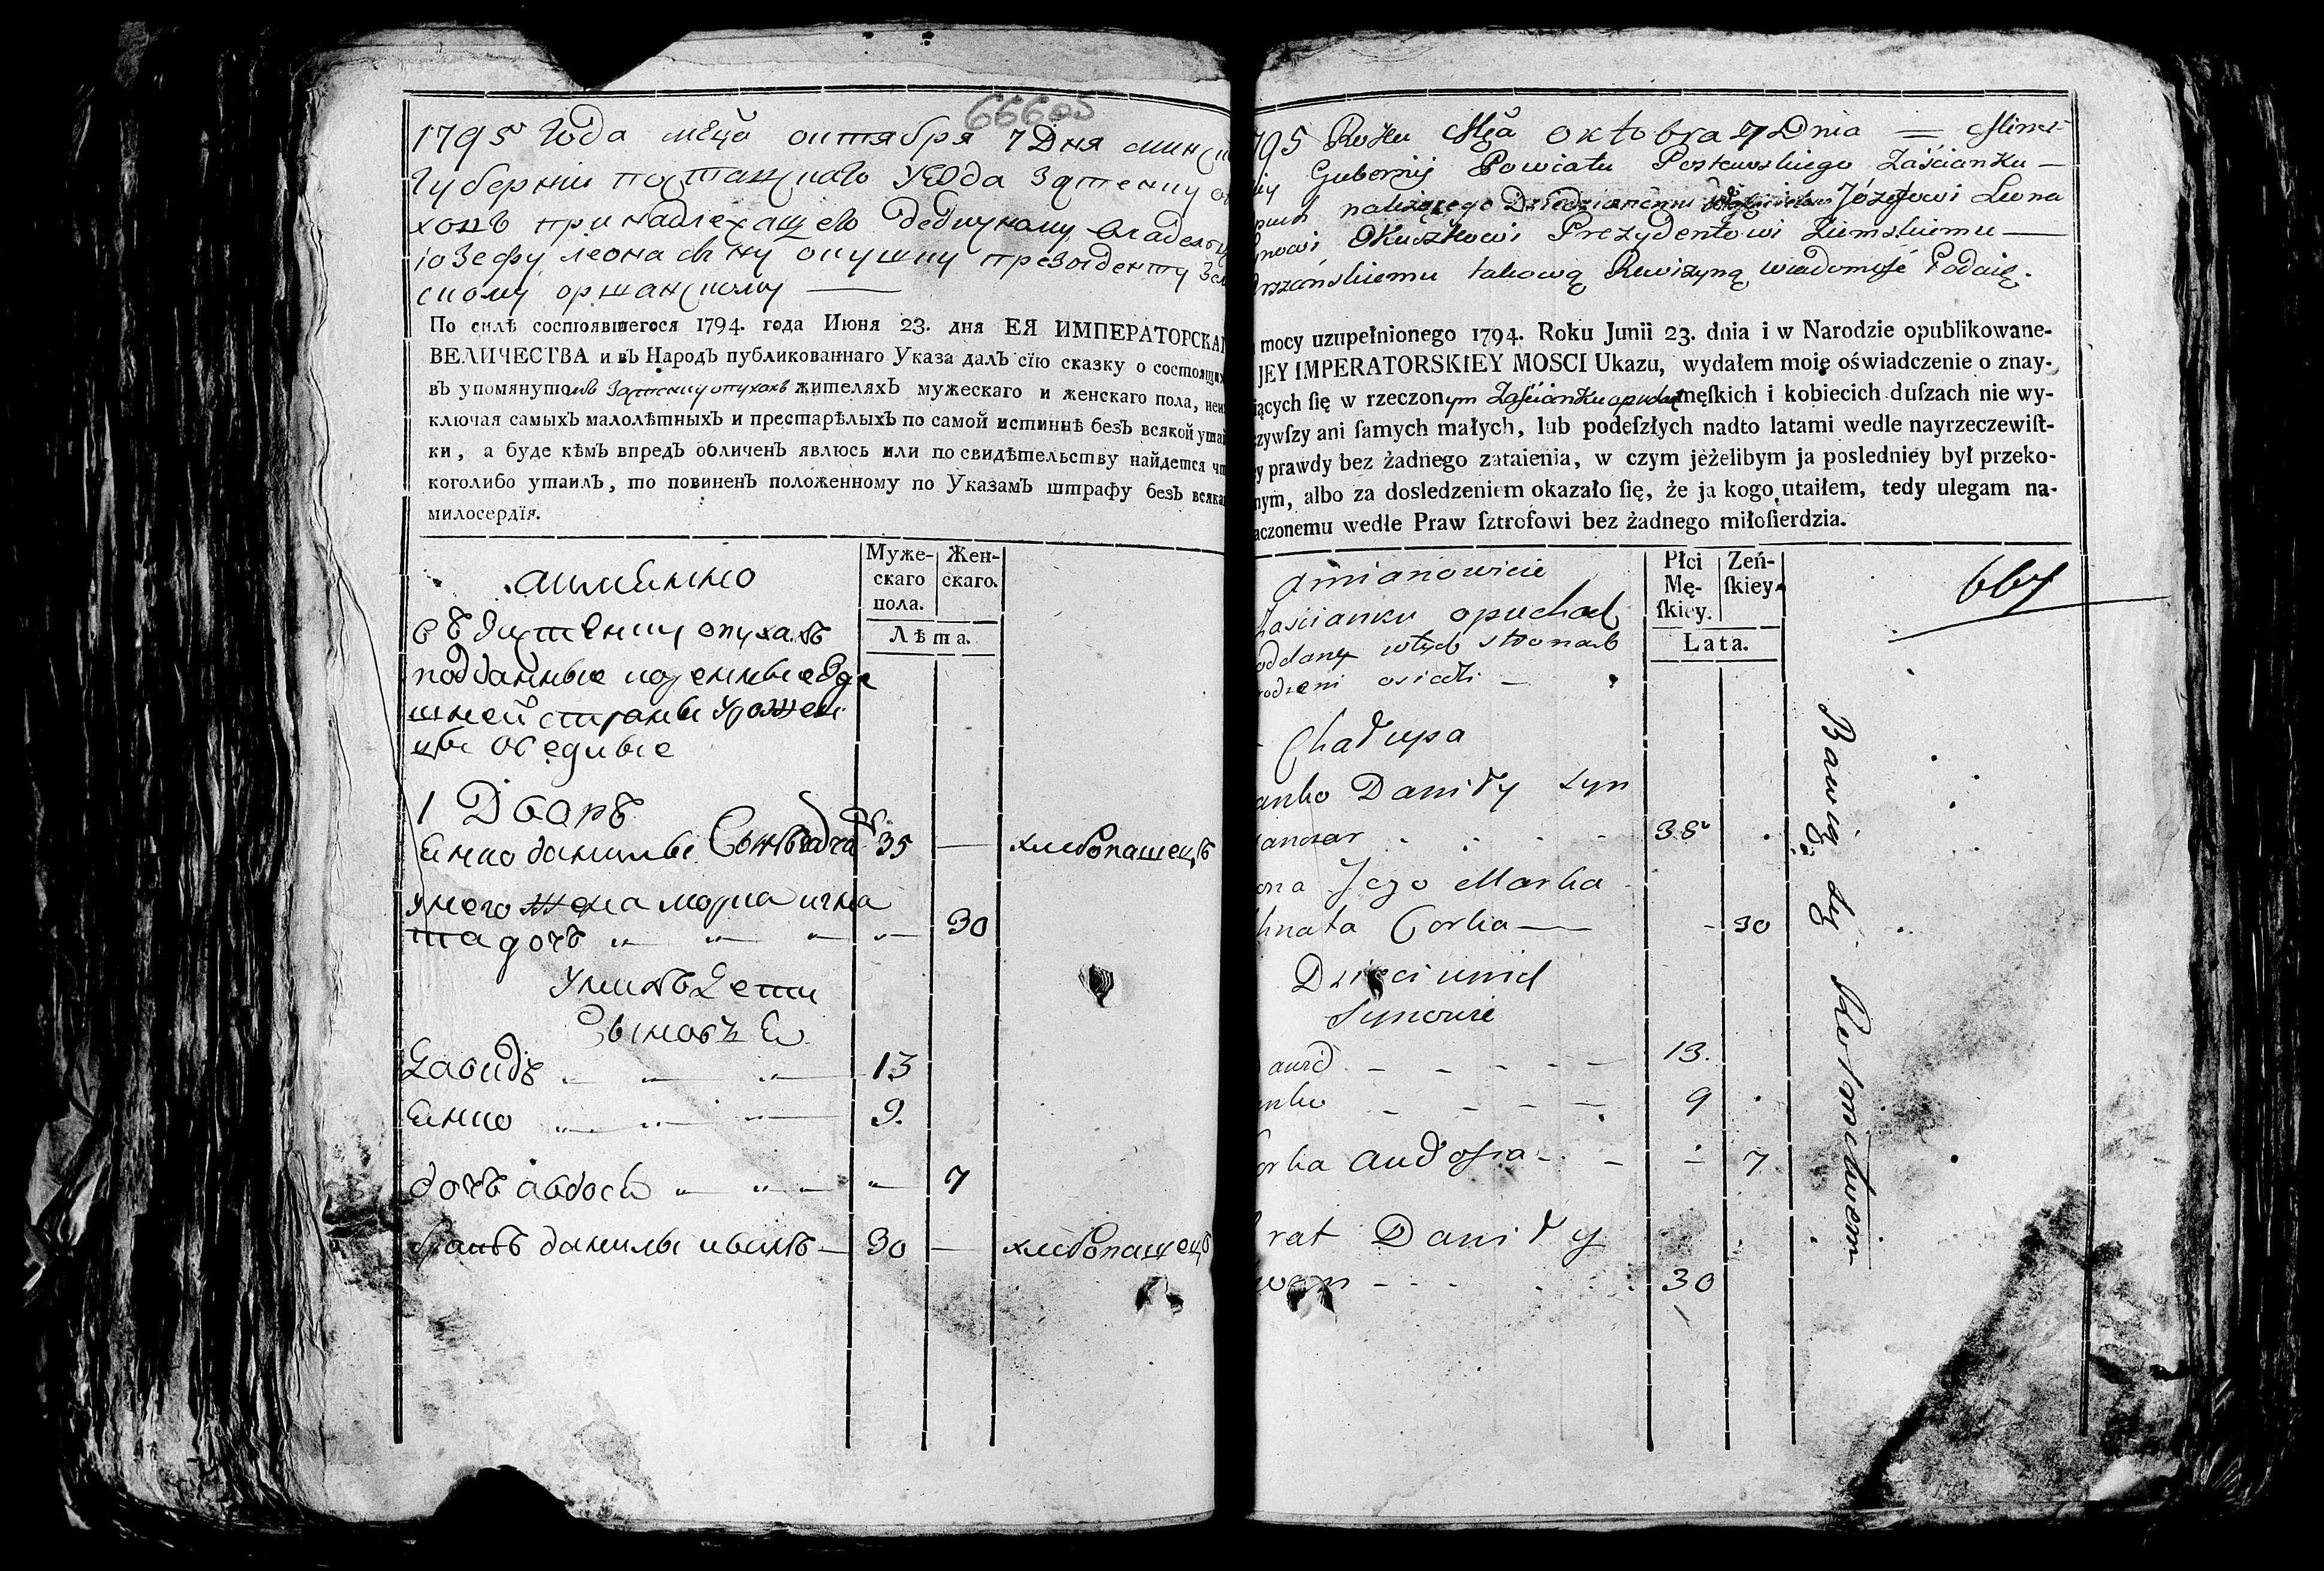 666 об
1795 года мсца октября 7 дня минс
губернии поставскаго уезда застенку оп
хохъ принадлежащего дедичному владельц
иозефу леонасыну окушку президенту зем
скому оршанскому
По силѣ состоявшегося 1794. года Июня 23. дня ЕЯ ИМПЕРАТОРСКАГ
ВЕЛИЧЕСТВА и въ Народъ публикованнаго Указа далъ сїю сказку о состоящих
въ упомянутомъ застенку опухохъ жителяхъ мужескаго и женскаго пола, неис
ключая самыхъ малолѣтныхъ и престарѣлыхъ по самой истиннѣ безъ всякой утай
ки, а буде кѣмъ впредъ обличенъ явлюсь или по свидѣтельству найдется чт
коголибо утаилъ, то повиненъ положенному по Указамъ штрафу безъ всяка
милосердїя.
Муже-скаго пола. Жен-скаго.
Лѣта.
аимянно
въ застенку опухахъ
подданные коренные зде
шней страны урожен
цы оседлые
1 Дворъ
янко данилы сынъ 35 — хлебопашецъ
унего жена марка игна
та дочь 30
уних дети
Сыновя
Давидъ 13
янко 9.
дочь авдося 7
братъ данилы иванъ 30 — хлебопашецъ
795 Roku Mca oktobra 7 Dnia = Mins-
iey Gubernij Powiatu Postawskiego Zaścianku —
належącego Dziedzicznemu Józefowi Leona
ynowi Okuszkowi Prezydentowi Ziemskiemu —
rszańskiemu takową Rewizyną wiadomość Podaię.
mocy uzupełnionego 1794. Roku Junii 23. dnia i w Narodzie opublikowane-
JEY IMPERATORSKIEY MOSCI Ukazu, wydałem moię oświadczenie o znay-
iących ſię w rzeczonym Zaścianku opuchach męſkich i kobiecich duſzach nie wy-
czywſzy ani ſamych małych, lub podeſzłych nadto latami wedle nayrzeczewiſt-
y prawdy bez żadnego zataienia, w czym jeżelibym ja posledniey był przeko-
nym, albo za dosledzeniem okazało ſię, że ja kogo utaiłem, tedy ulegam na-
aczonemu wedle Praw ſztrofowi bez żadnego miłoſierdzia.
Płci Mę-ſkiey. Zeń-ſkiey.
Lata.
667
amianowicie
Zascianku opuchach
oddany wtych stronach
rodzeni osiadli —
Chałupa
anko Daniły Syn
38
ona Jego Marka
hnata Corka — 30
Dzieci unich
Synowie
awid 13.
anko 9
orka audosia 7
rat Daniły
wan 30
Bawią się Rolnictwem